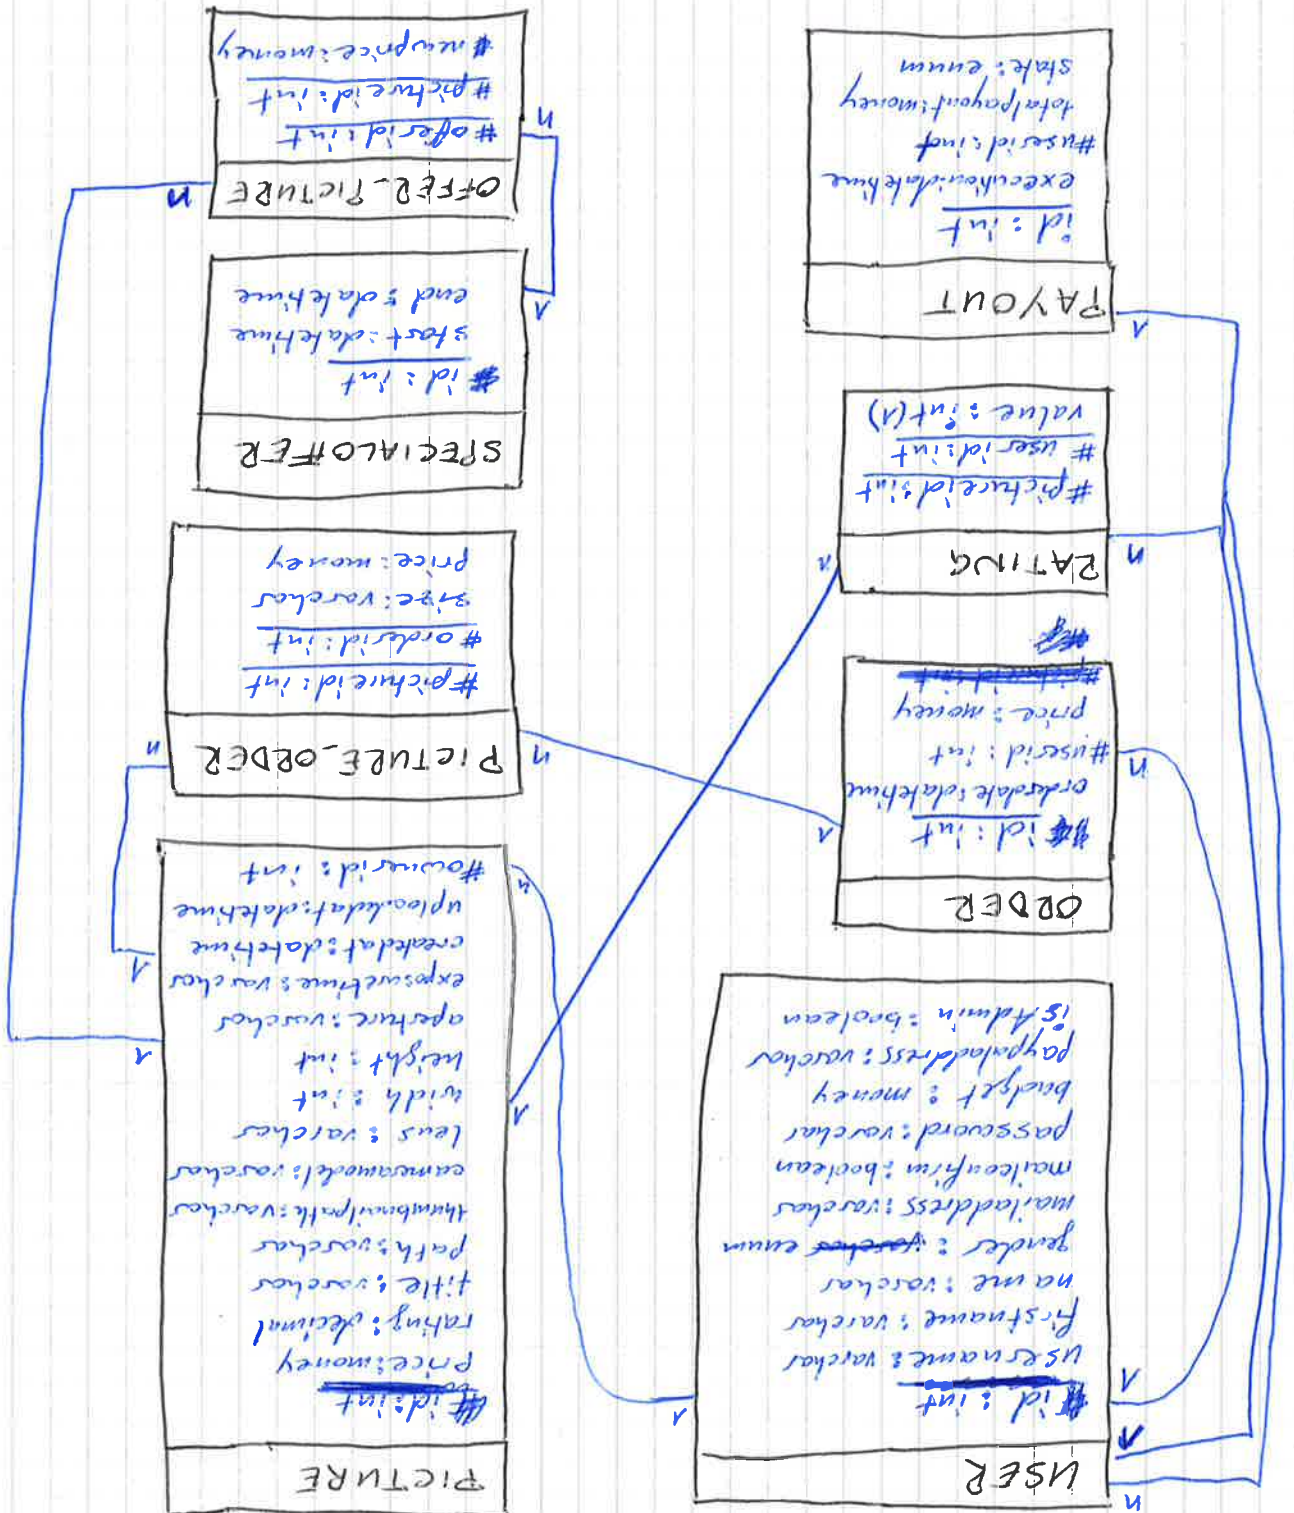 USER
id : int
username : varchar
firstname : varchar
name : varchar
gender : enum
mailaddress : varchar
mailconfirm : boolean
password : varchar
budget : money
paypaladdress : varchar
isAdmin : boolean
n
1
1
1
PICTURE
id : int
price : money
rating : decimal
title : varchar
path : varchar
thumbnailpath : varchar
cameramodel : varchar
lens : varchar
widh : int
height : int
aperture : varchar
exposuretime : varchar
createdat : datetime
uploadedat : datetime
#ownerid : int
1
1
1
n
ORDER
id : int
orderdate : datetime
#userid : int
price : money
n
1
PICTURE_ORDER
#pictureid : int
#orderid : int
size : varchar
price : money
n
n
RATING
#pictureid : int
#userid : int
value : int(1)
n
n
SPECIALOFFER
id : int
start : datetime
end : datetime
1
PAYOUT
id : int
execution : datetime
#userid : int
totalpayout : money
state : enum
1
OFFER_PICTURE
#offerid : int
#pictureid : int
#newprice : money
n
n